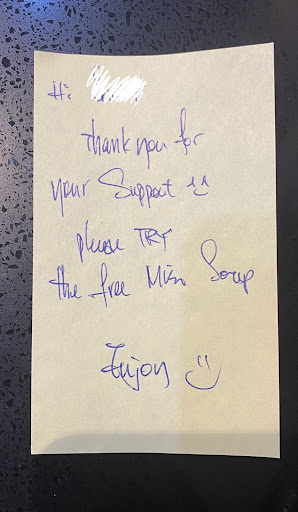 Hi
thank you for
your Support ^^
please TRY
the free Miso Soup
Enjoy :)